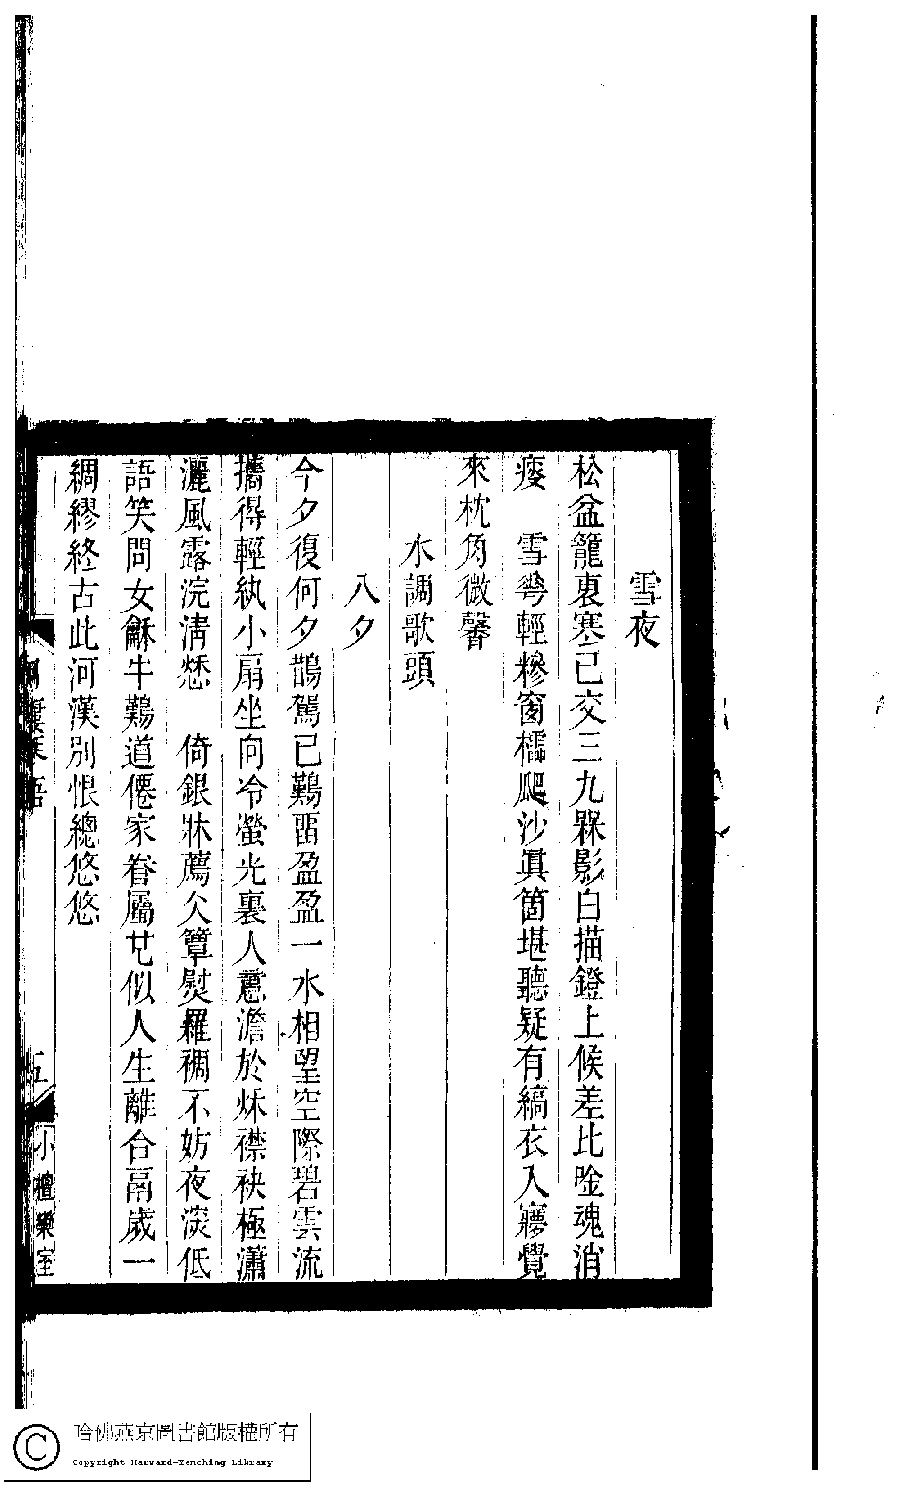 雪夜
松盆籠裏塞已交三九槑影白描鐙上候差比唫魂消
瘦　雪弯輕糝窗櫺爬沙眞箇堪聽疑有縞衣入寤覺
來枕角微馨
水調歌頭
八夕
今夕復何夕鵲駕已鷄畱盈盈一水相望空際碧雲流
攜得輕紈小扇坐向冷螢光裏人意澹於秌襟袂極瀟
灑風露浣淸愁　倚銀牀薦仌簟熨羅裯不妨夜深低
語笑問女龢牛難道僊家眷屬也似人生離合鬲歲一
綢繆終古此河漢別恨總悠悠
五
小檀欒室
哈佛燕京圖書館版權所有
Copyright Harvard-Yenching Library